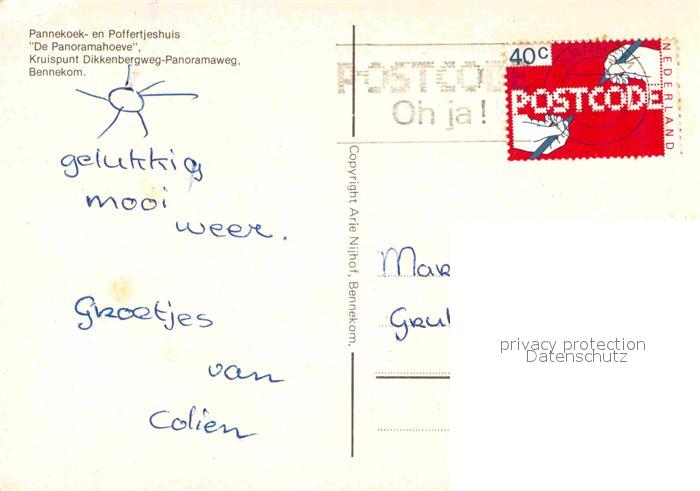 Pannekoek- en Poffertjeshuis
"De Panoramahoeve",
Kruispunt Dikkenbergweg-Panoramaweg,
Bennekom.
gelukkig
mooi
weer.
Groetjes
van
Colien
Copyright Arie Nijhof, Bennekom.
POSTCODE
Oh ja!
40c
POSTCODE
NEDERLAND
privacy protection
Datenschutz